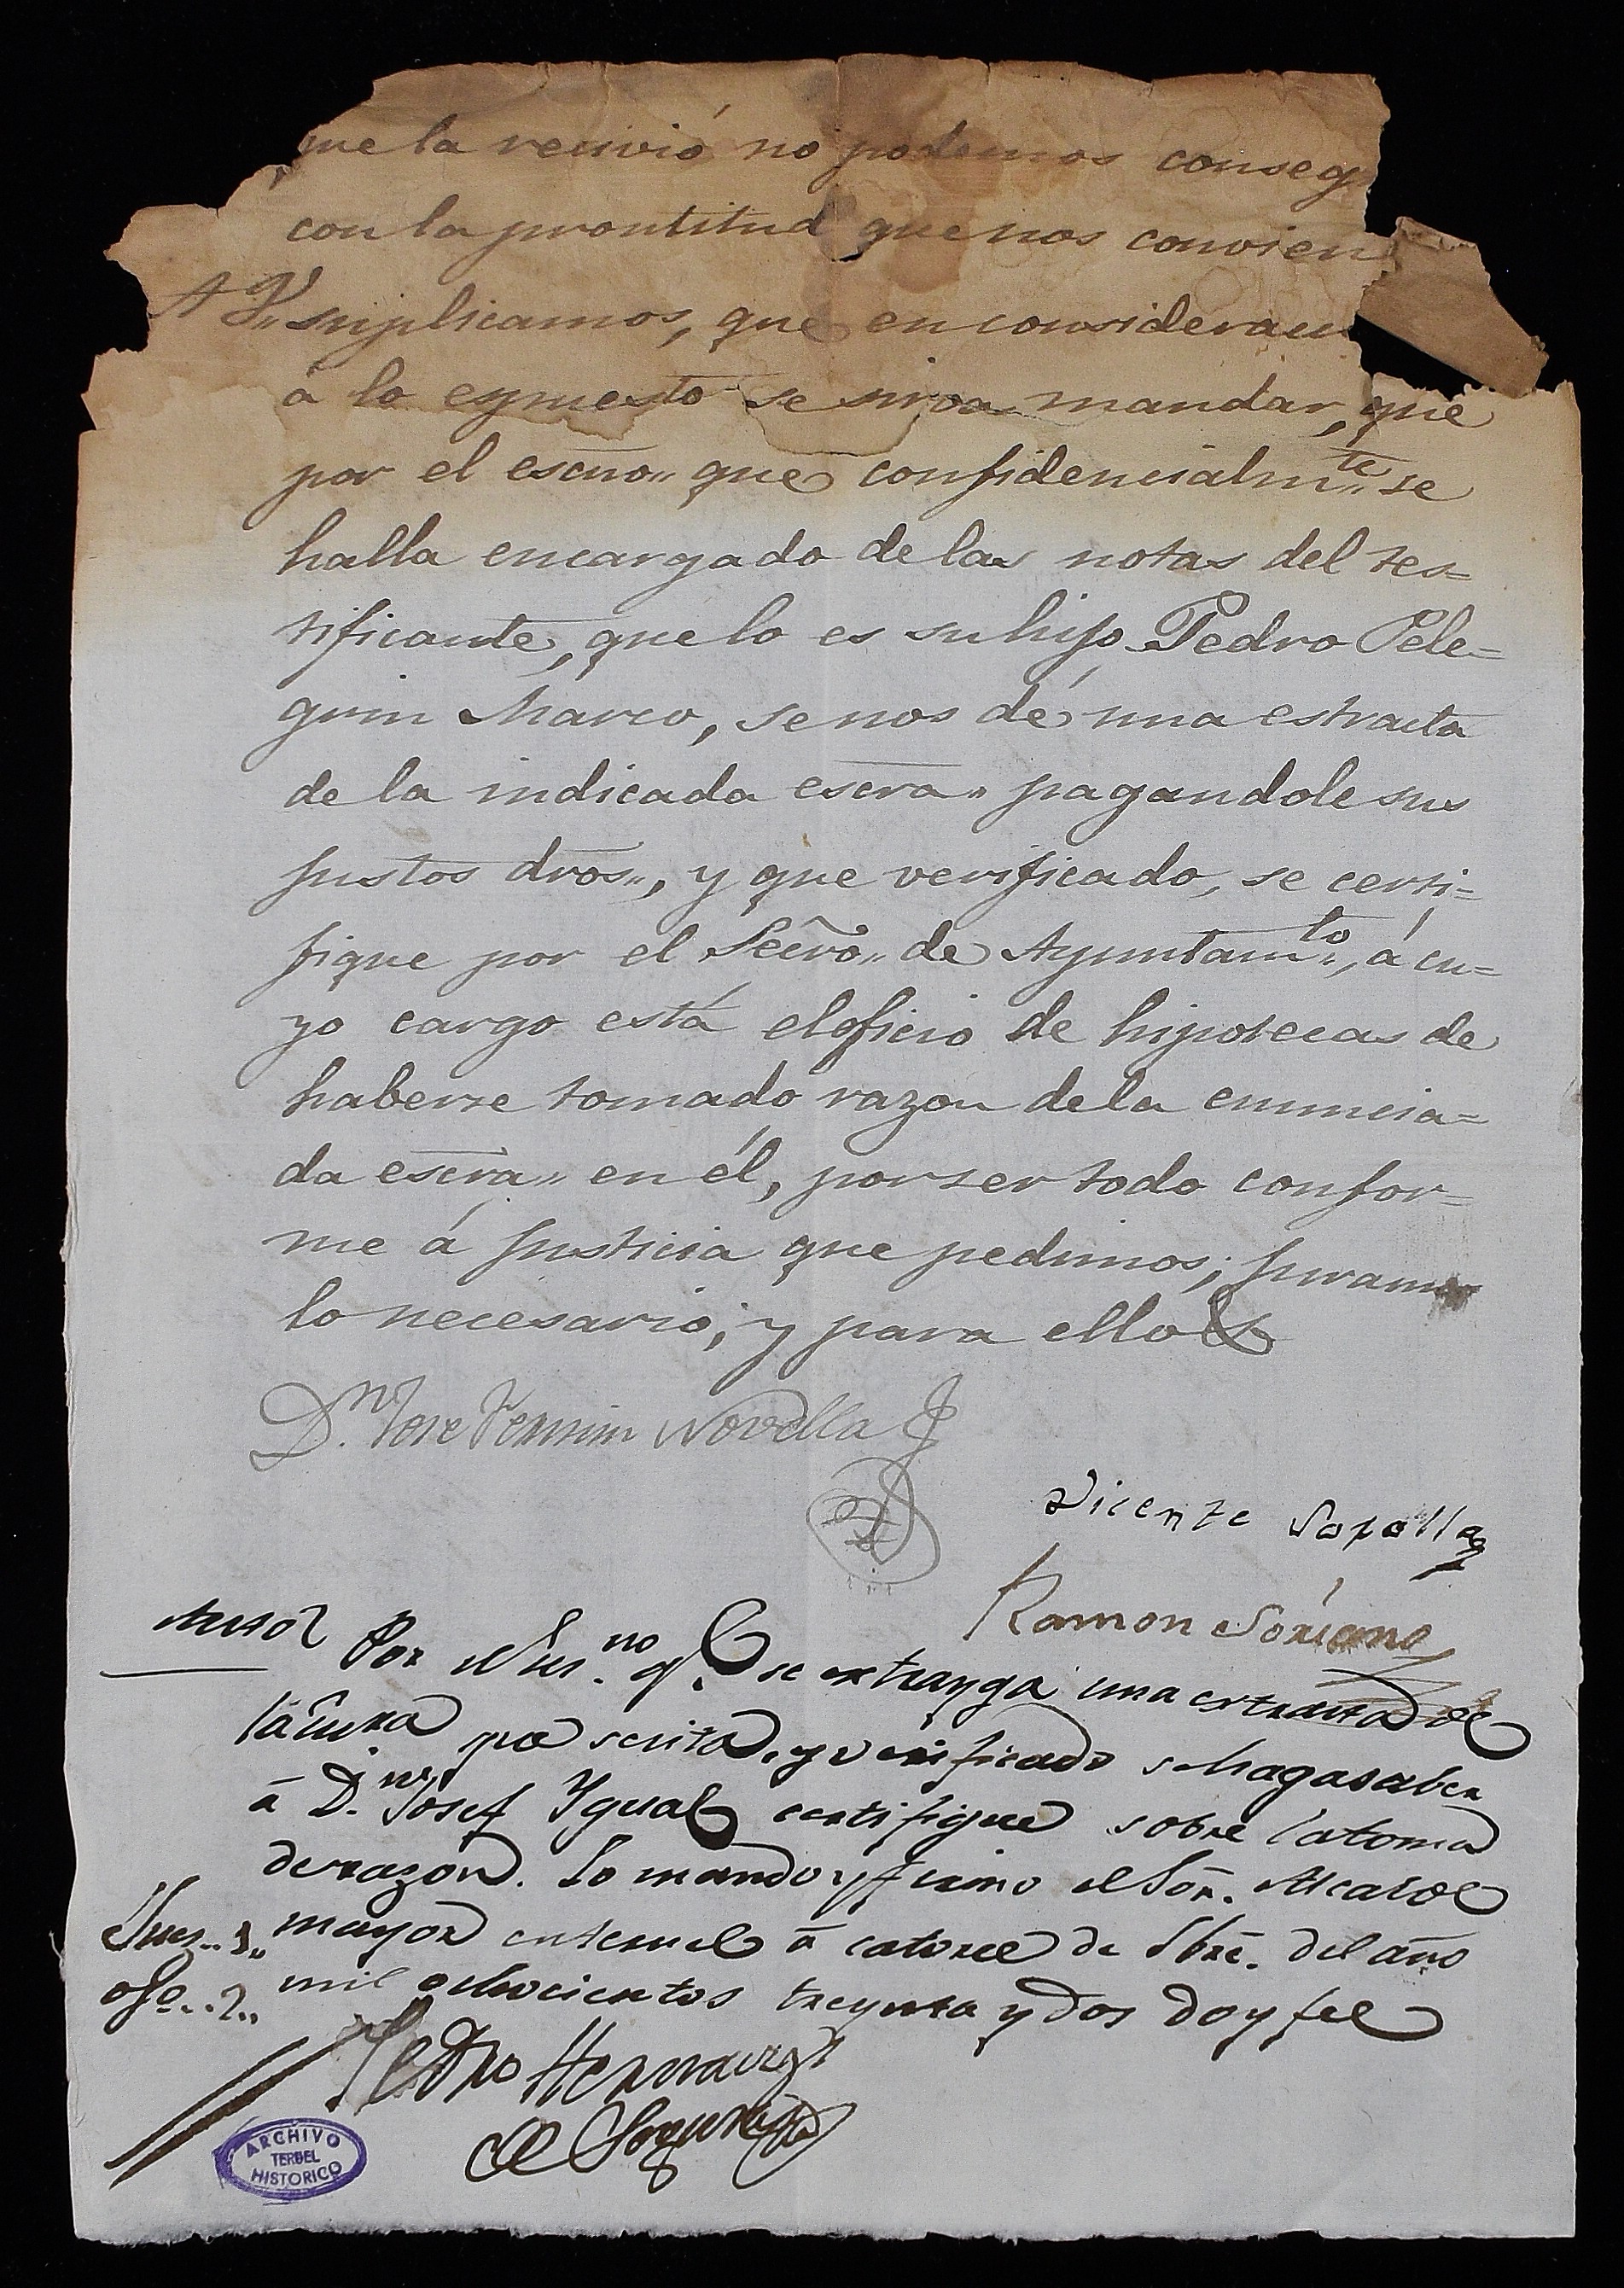 que la recivió no podemos conseg
con la prontitud que nos convien
A V. suplicamos, que en considerac
á lo espuesto se sirva mandar, que
por el escno,, que confidencialmte,, se
halla encargado de las notas del tes=
tificante, que lo es su hijo Pedro Pele=
grin Marco, se nos dé una estracta
de la indicada escra,, pagandole sus
justos dros,,, y que verificado, se certi=
fique por el Secrio,, de Ayuntamto,,, á cu=
yo cargo está el oficio de hipotecas de
haberse tomado razon de la enuncia=
da escra,, en él, por ser todo confor=
me á justicia que pedimos; juramos
lo necesario; y para ello &
Dn. Jose Fermin Novella
Vicente
Ramon Soriano
Auto Por se extrayga una extracta de
la scritа, y verificado se haga saber
á Dn. Josef Ygual certifique sobre la toma
de razon. Lo mando y firmo el Sor. Alcalde
mayor en Teruel á catorce de del año
mil ochocientos treynta y dos doy fee
Pedro
ARCHIVO
TERUEL
HISTORICO